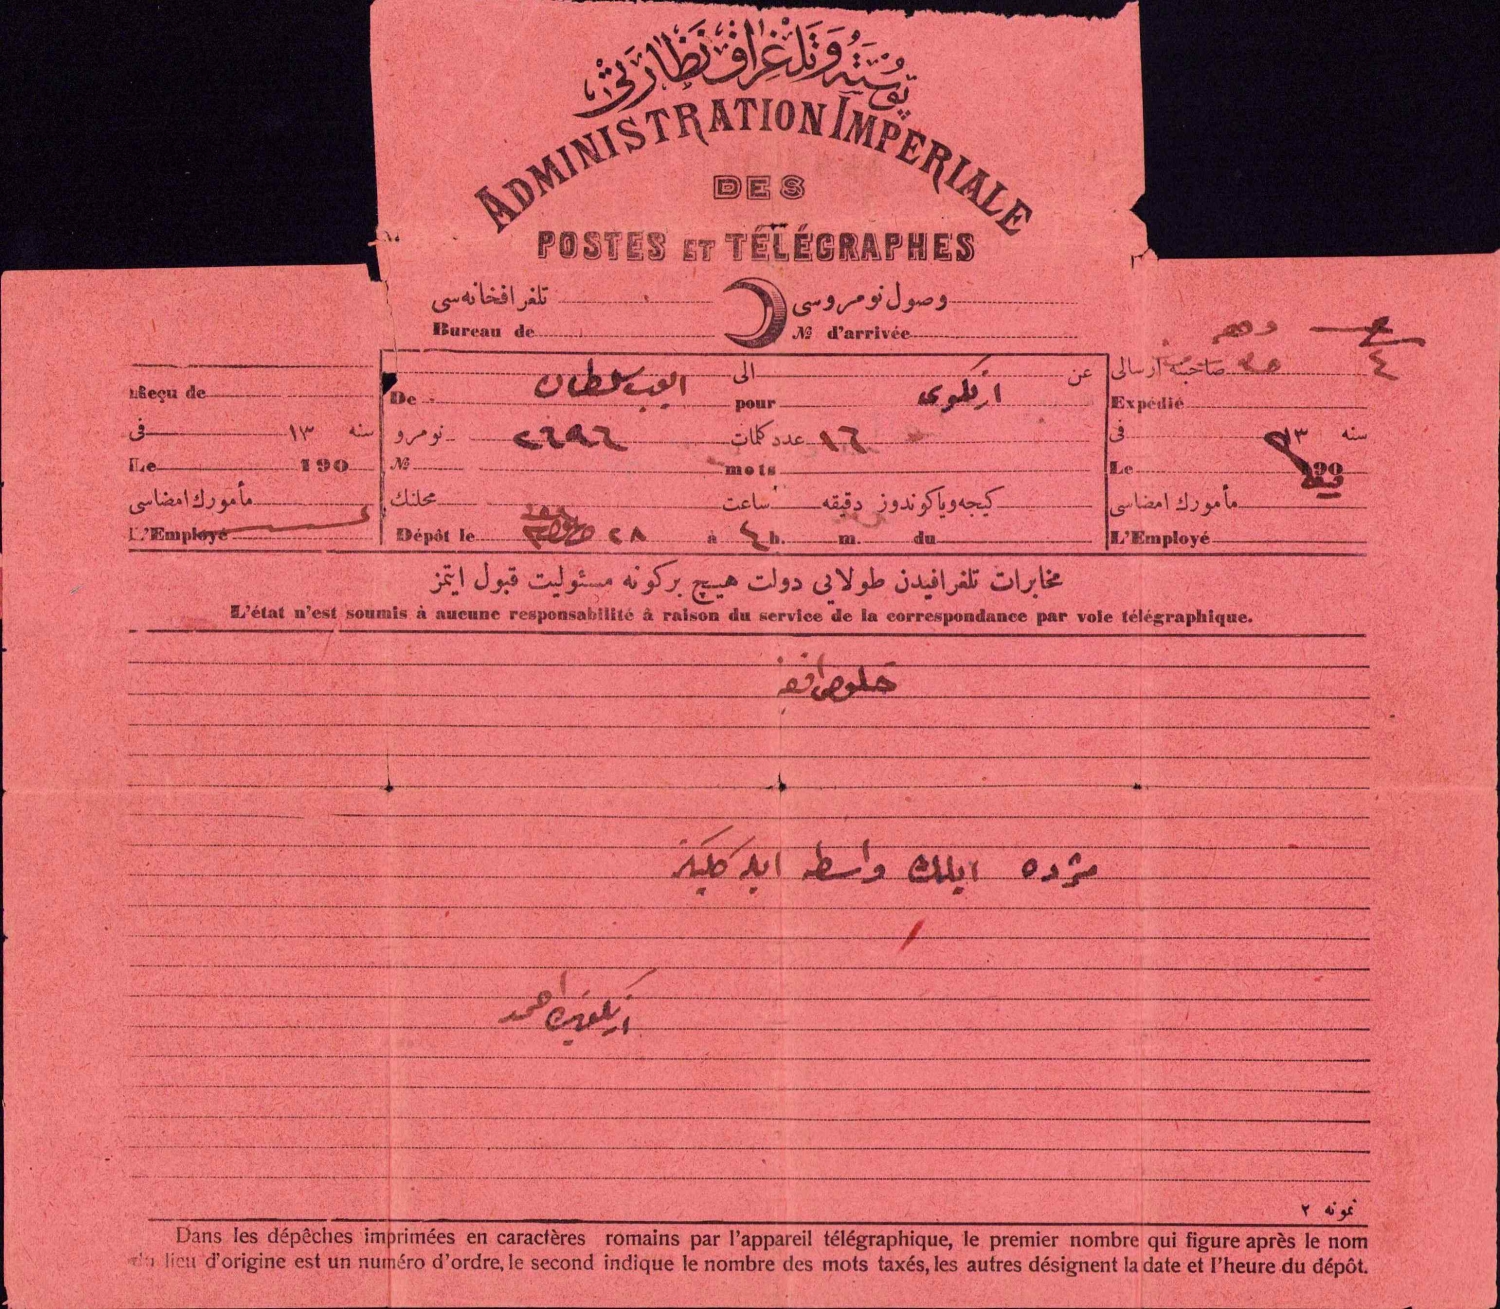 پوسته و تلغراف نظارتی
ADMINISTRATION IMPERIALE
DES
POSTES ET TÉLÉGRAPHES
وصول نومروسی تلغرافخانه‌سی
Bureau de № d'arrivée
٤
صاحبنه ارسالی
Expédié
فی سنه ١٣
Le 190
مأمورك امضاسی
L'Employé
عن ارنكوی الی ایوب سلطان
De pour
نومرو ٢٦٩٦ عدد كلمات ١٦
№ mots
محلنك ساعت دقیقه كیجه ویا كوندوز
Dépôt le ٢٨ à ٤ h. m. du
Reçu de
فی ١٣ سنه
Le 190
مأمورك امضاسی
L'Employé
مخابرات تلغرافیدن طولایی دولت هیچ بركونه مسئولیت قبول ایتمز
L'état n'est soumis à aucune responsabilité à raison du service de la correspondance par voie télégraphique.
خلوصی افندی
مژده ایلك واسطه ایله كلیكز
احمد
نمونه ٢
Dans les dépêches imprimées en caractères romains par l'appareil télégraphique, le premier nombre qui figure après le nom
du lieu d'origine est un numéro d'ordre, le second indique le nombre des mots taxés, les autres désignent la date et l'heure du dépôt.